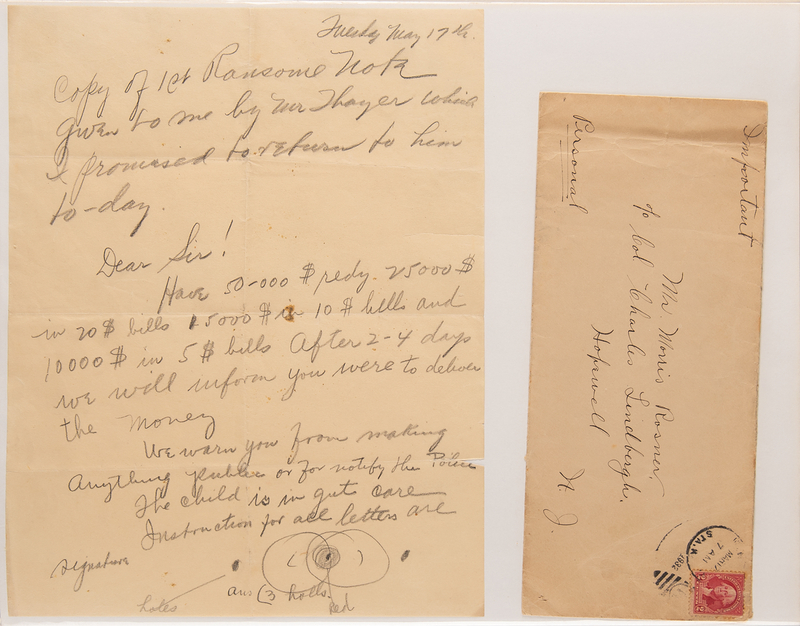 Tuesday May 17th.
Copy of 1st Ransome Note
given to me by Mr Thayer which
I promised to return to him
to-day.
Dear Sir!
Have 50-000 $ redy. 25000 $
in 20 $ bills 15000 $ in 10 $ bills and
10000 $ in 5 $ bills After 2-4 days
we will inform you were to deliver
the Money
We warn you from making
Anything public or for notify the Police
The child is in gute care
Instruction for all letters are
signature
and 3 holls.
holes
Red
Important
Personal
Mr. Morris Rosner.
% Col Charles Lindbergh.
Hopewell
N. J.
STA.K
7 AM
1932